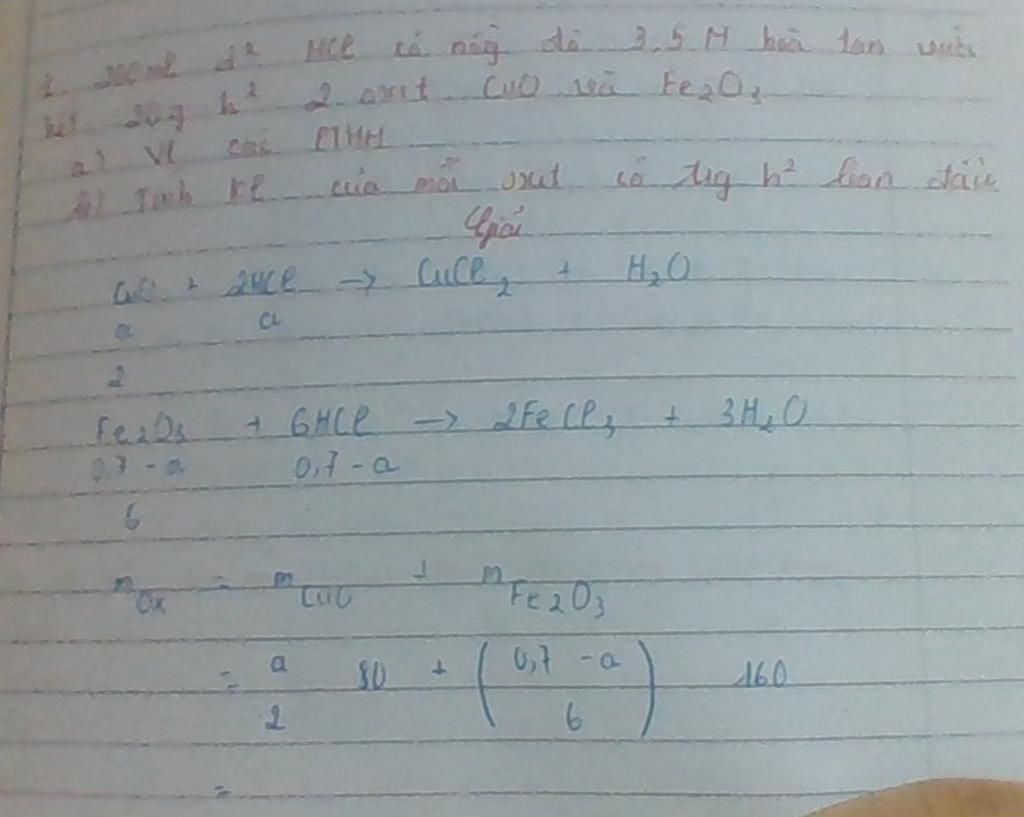 1. 200ml d² HCl có nồg độ 3,5 M hoà tan vừa
hết 20g h² 2 oxit CuO và Fe2O3
a) Vt các PTHH
b) Tính kl của mỗi oxit có trg h² ban đầu
Giải
CuO + 2HCl → CuCl2 + H2O
a a
2
Fe2O3 + 6HCl → 2FeCl3 + 3H2O
0,7 - a 0,7 - a
6
m Ox = m CuO + m Fe2O3
= a/2 80 + (0,7 - a / 6) 160
=